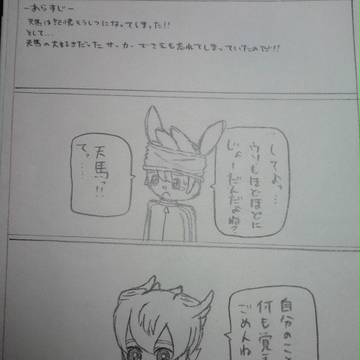 ーあらすじー
天馬は記憶もうしつになってしまった!!
そして…
天馬の大好きだったサッカーでさえも忘れてしまっていたのだ!!
…してよっ…
ウソもほどほどに
じょーだんだよね?
天馬っ!!
て、…
自分のこ
何も覚え
ごめんね